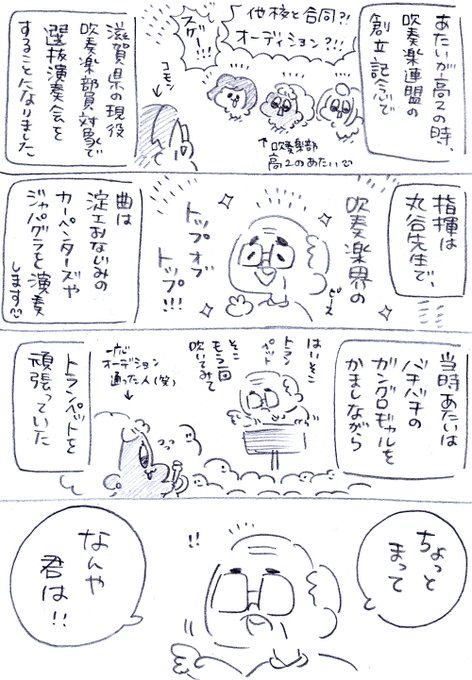 あたいが高2の時、
吹奏楽連盟の
創立記念で
他校と合同?!
オーディション?!!
スゲー!!!
コモン
↑吹奏楽部
高2のあたい
滋賀県の現役
吹奏楽部員対象で
選抜演奏会を
することになりました
指揮は
丸谷先生で、
吹奏楽界の
トップオブ
トップ!!!
ピース
曲は
淀工おなじみの
カーペンターズや
ジャパグラを演奏
します
当時あたいは
バチバチの
ガングロギャルを
かましながら
はいそこ
トランペット
そこ
もう一回
吹いてみて
一応
オーディション
通った人(笑)
トランペットを
頑張っていた
ちょっと
まって
!!
なんや
君は!!